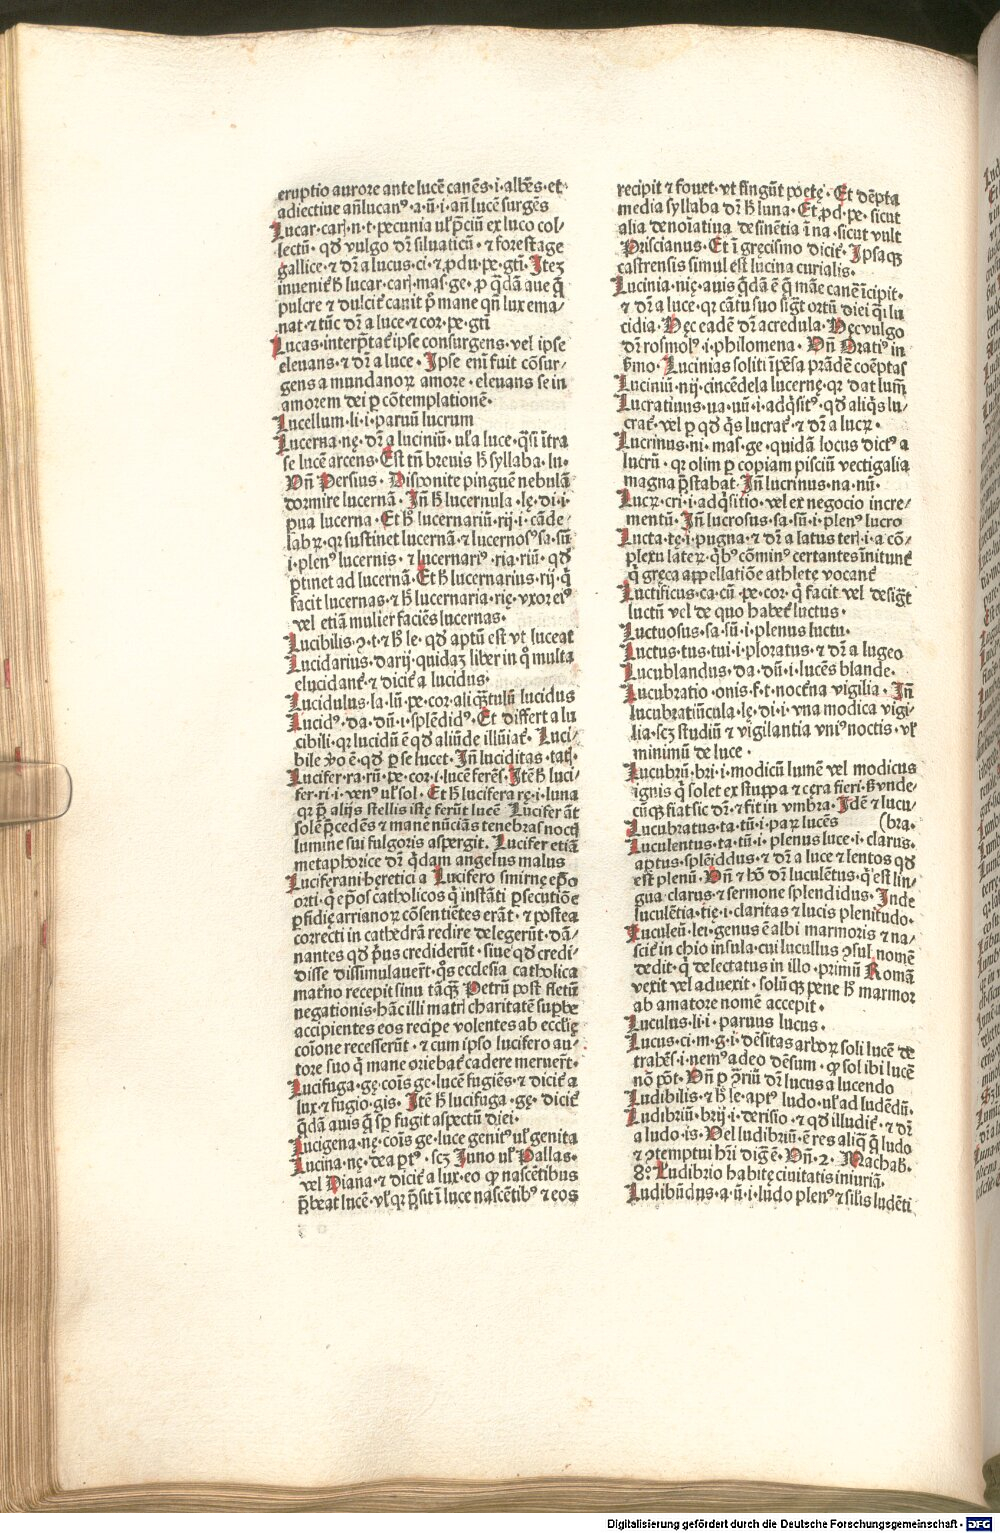 eruptio aurore ante lucē canēs·i·albēs·et
adiectiue añlucanꝰ·a·ū·i·añ lucē surgēs
Lucar·carꝭ·n·t·pecunia ul' p̄ciū ex luco col-
lectū·qđ vulgo dr̄ siluaticū·⁊ forestage
gallice·⁊ dr̄ a lucus·ci·⁊ ꝓdu·pe·gti·Itez
inuenit̄ h̄ lucar·carꝭ·mas·ge·ꝓ q̄dā aue q̄
pulcre ⁊ dulcit̄ canit p̄ mane qn̄ lux ema-
nat·⁊ tūc dr̄ a luce·⁊ cor·pe·gti
Lucas·interp̄tat̄ ipse consurgens·vel ipse
eleuans·⁊ dr̄ a luce·Ipse eni fuit cōsur-
gens a mundanoꝝ amore·eleuans se in
amorem dei p cōtemplationē·
Lucellum·li·i·paruū lucrum
Lucerna·nę·dr̄ a luciniū·ul' a luce·qsi ītra
se lucē arcens·Est tn̄ breuis h̄ syllaba·lu·
Vn̄ Persius·Disponite pinguē nebulā
dormire lucernā·Iñ h̄ lucernula·lę·di·i·
pua lucerna·Et h̄ lucernariū·rij·i·cāde-
labꝝ·qr sustinet lucernā·⁊ lucernosꝰ sa·sū
i·plenꝰ lucernis·⁊ lucernariꝰ·ria·riū·qđ
p̄tinet ad lucernā·Et h̄ lucernarius·rij·q̄
facit lucernas·⁊ h̄ lucernaria·rię·vxor eiꝰ
vel etiā mulier faciēs lucernas·
Lucibilis·ꝯ·t·⁊ h̄ le·qđ aptū est vt luceat
Lucidarius·darij·quidaz liber in q̊ multa
elucidant̄·⁊ dicit̄ a lucidus·
Lucidulus·la·lū·pe·cor·aliqz̄tulū lucidus
Lucidꝰ·da·dū·i·splēdidꝰ·Et differt a lu
cibili·qr lucidū ē qđ aliūde illūiat̄·Luci-
bile v̊o ē·qđ p se lucet·Iñ luciditas·tatꝭ·
Lucifer·ra·rū·pe·cor·i·lucē ferēs·Itē h̄ luci-
fer·ri·i·venꝰ ul' sol·Et h̄ lucifera rę·i·luna
qr p̄ alijs stellis istę ferūt lucē Lucifer āt
solē p̄cedēs ⁊ mane nūciās tenebras noctꝭ
lumine sui fulgoris aspergit·Lucifer etiā
metaphorice dr̄ q̄dam angelus malus
Luciferani hęretici a Lucifero smirnę ep̄o
orti·q̄ ep̄os catholicos q̄ instāti p̄secutiōe
p̄fidię arrianoꝝ cōsentiētes erāt·⁊ postea
correcti in cathedrā redire delegerūt·dā-
nantes qđ p̄us crediderūt·siue qđ credi-
disse dissimulauer̄t·q̄s ecclesia catholica
mat̄no recepit sinu tāqz̄ Petrū post fletū
negationis·hāc illi matrꝭ charitatē sup̄be
accipientes eos recipe volentes ab eccl'ię
coīone recesserūt·⁊ cum ipso lucifero au-
tore suo q̄ mane oriebat̄ cadere meruer̄t·
Lucifuga·gę·coīs ge·lucē fugiēs·⁊ dicit̄ a
lux·⁊ fugio·gis·Itē h̄ lucifuga·gę·dicit̄
q̄dā auis q̄ sp̄ fugit aspectū diei·
Lucigena·nę·coīs ge·luce genitꝰ ul' genita
Lucina·nę·dea p̄tꝰ·scz Iuno ul' Pallas·
vel Diana·⁊ dicit̄ a lux·eo ꝙ nascētibus
p̄beat lucē·vl' qr p̄sit ī luce nascētibꝰ ⁊ eos
recipit ⁊ fouet·vt fingūt poetę·Et dēpta
media syllaba dr̄ h̄ luna·Et ꝓd·pe·sicut
alia denoīatiua desinētia ī na·sicut vult
Priscianus·Et ī gręcismo dicit̄·Ipsaqz
castrensis simul est lucina curialis·
Lucinia·nię·auis q̄dā ē q̄ māe canē īcipit·
⁊ dr̄ a luce·qr cātu suo sigt ortū diei q̄i lu
cidia·Hęc eadē dr̄ acredula·Hęc vulgo
dr̄ rosmolꝰ·i·philomena·Vn̄ Oratiꝰ in
s̄mo·Lucinias soliti īpēsa prādē coēptas
Luciniū·nij·cincēdela lucernę·qr dat lum̄
Lucratiuus·ua·uū·i·adq̄sitꝰ·qđ aliq̄s lu-
crat̄·vel p qđ q̄s lucrat̄·⁊ dr̄ a lucꝝ·
Lucrinus·ni·mas·ge·quidā locus dictꝰ a
lucrū·qr olim p copiam pisciū vectigalia
magna p̄stabat·Iñ lucrinus·na·nū·
Lucꝝ·cri·i·adq̄sitio·vel ex negocio incre-
mentū·Iñ lucrosus·sa·sū·i·plenꝰ lucro
Lucta·tę·i·pugna·⁊ dr̄ a latus terꝭ·i·a cō-
plexu lateꝝ·q̄bꝰ cōminꝰ certantes īnitunt̄
q̄ gręca appellatiōe athletę vocant̄
Luctificus·ca·cū·pe·cor·q̄ facit vel desigt
luctū vel de quo habet̄ luctus·
Luctuosus·sa·sū·i·plenus luctu·
Luctus·tus·tui·i·ploratus·⁊ dr̄ a lugeo
Lucublandus·da·dū·i·lucēs blande·
Lucubratio·onis·f·t·noctna vigilia·Iñ
lucubratiūcula·lę·di·i·vna modica vigi-
lia·scz studiū ⁊ vigilantia vniꝰ noctis·vl'
minimū de luce·
Lucubrū·bri·i·modicū lumē vel modicus
ignis q̄ solet ex stuppa ⁊ cęra fieri·s̄ vnde-
cūqz fiat sic dr̄·⁊ fit in vmbra·Idē ⁊ lucu-
Lucubratus·ta·tū·i·paꝝ lucēs (bra·
Luculentus·ta·tū·i·plenus luce·i·clarus·
aptus·splēdidus·⁊ dr̄ a luce ⁊ lentos qđ
est plenū·Vn̄ ⁊ hō dr̄ luculētus·q̄ est lin-
gua clarus·⁊ sermone splendidus·Inde
luculētia·tię·i·claritas ⁊ lucis plenitudo·
Luculeū·lei·genus ē albi marmoris ⁊ na-
scit̄ in chio insula·cui lucullus ꝯsul nomē
dedit·q̄ delectatus in illo·primū Romā
vexit vel aduexit·solūqz pene h̄ marmor
ab amatore nomē accepit·
Luculus·li·i·paruus lucus·
Lucus·ci·m·g·i·dēsitas arboꝝ soli lucē de
trahēs·i·nemꝰ adeo dēsum·ꝙ sol ibi lucē
nō pōt·Vn̄ p ꝯriū dr̄ lucus a lucendo
Ludibilis·⁊ h̄ le·aptꝰ ludo·ul' ad ludēdū·
Ludibriū·brij·i·derisio·⁊ qđ illudit̄·⁊ dr̄
a ludo·is·Vel ludibriū·ē res aliq̄ q̄ ludo
⁊ ꝯtemptui h̄ri digē·Vn̄·2·Machab·
8°·Ludibrio habitę ciuitatis iniuriā·
Ludibūdus·a·ū·i·ludo plenꝰ ⁊ silis ludēti
Digitalisierung gefördert durch die Deutsche Forschungsgemeinschaft - DFG